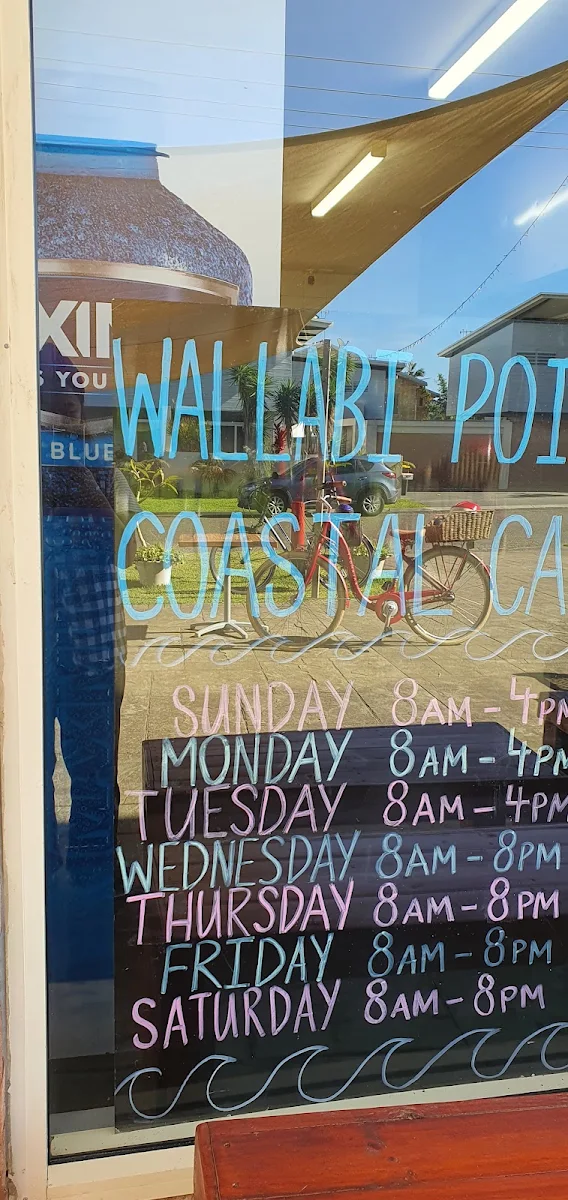 XIN
S YOU
BLUE
WALLABI POI
COASTAL CA
SUNDAY 8AM - 4PM
MONDAY 8AM - 4PM
TUESDAY 8AM - 4PM
WEDNESDAY 8AM - 8PM
THURSDAY 8AM - 8PM
FRIDAY 8AM - 8PM
SATURDAY 8AM - 8PM